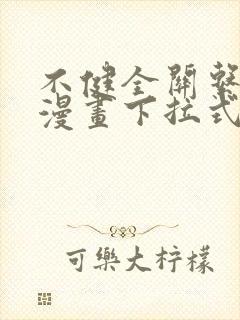 不健全關繫
漫畫下拉式
可樂大柠檬